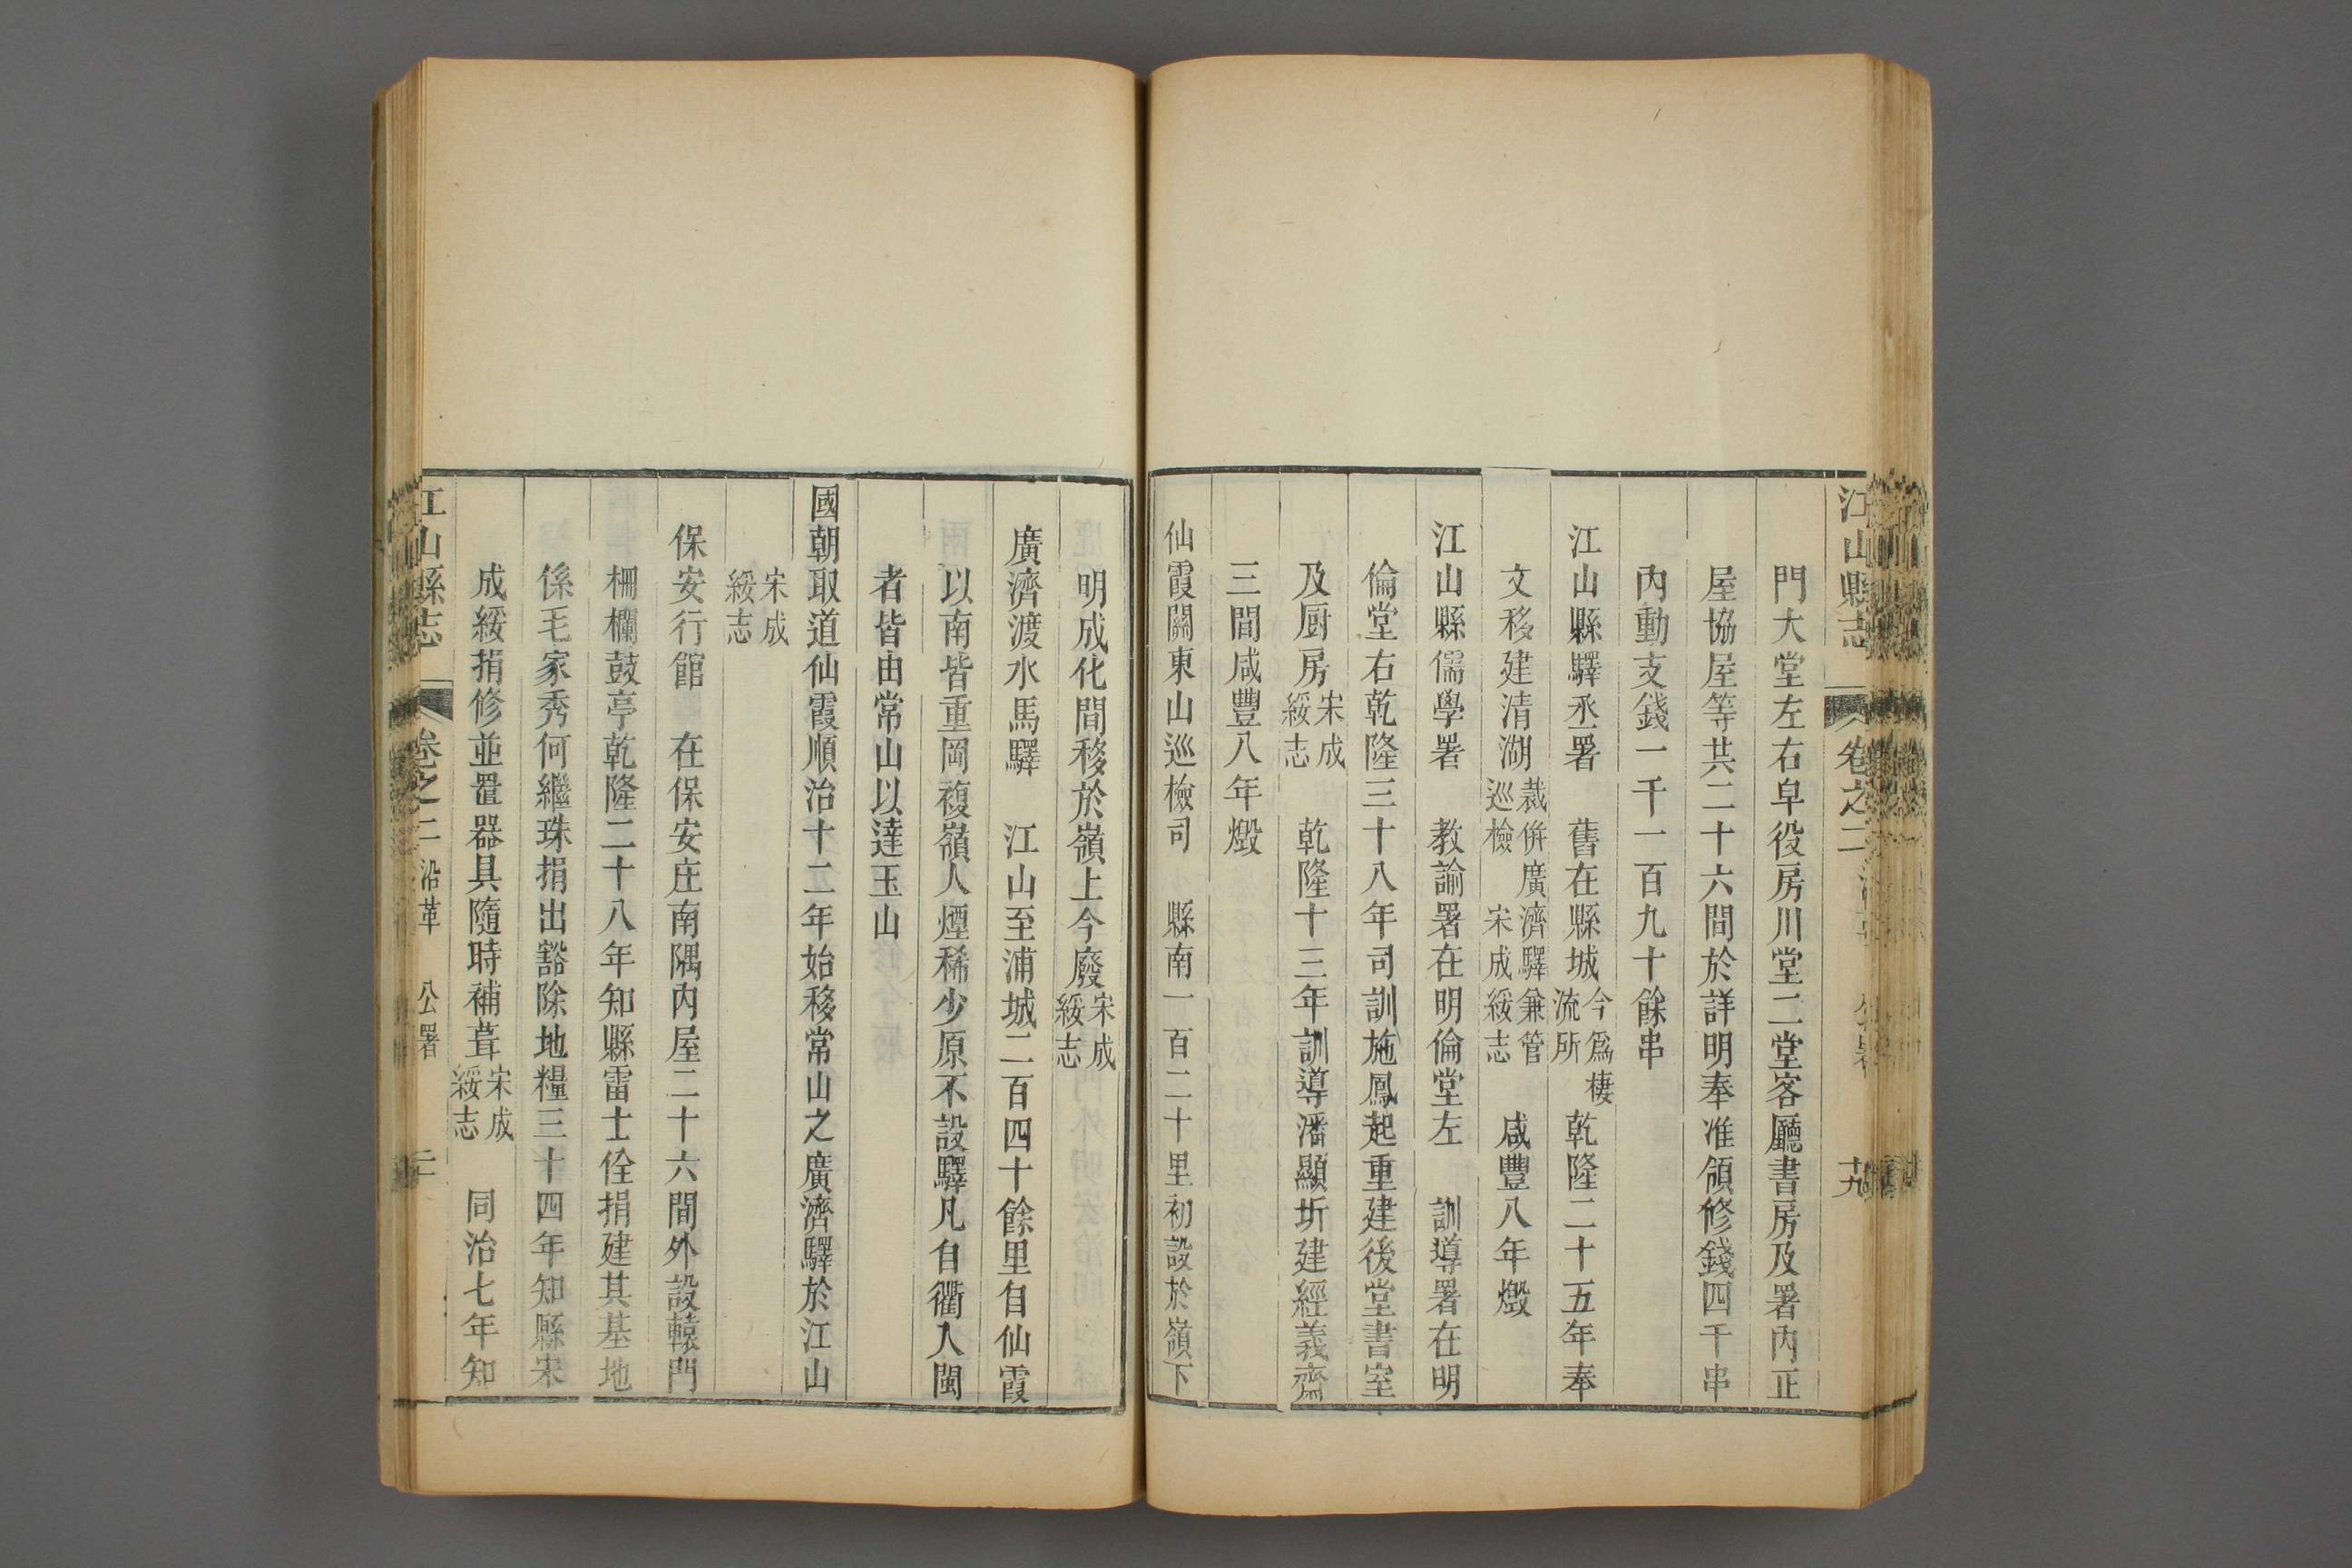 江山縣志 卷之二 十九
門大堂左右皁役房川堂二堂客廳書房及署內正
屋協屋等共二十六間於詳明奉准領修錢四千串
內動支錢一千一百九十餘串
江山縣驛丞署 舊在縣城今爲棲流所乾隆二十五年奉
文移建清湖裁併廣濟驛兼管巡檢 宋成綏志 咸豐八年燬
江山縣儒學署 教諭署在明倫堂左 訓導署在明
倫堂右乾隆三十八年司訓施鳳起重建後堂書室
及厨房宋成綏志 乾隆十三年訓導潘顯圻建經義齋
三間咸豐八年燬
仙霞關東山巡檢司 縣南一百二十里初設於嶺下
明成化間移於嶺上今廢宋成綏志
廣濟渡水馬驛 江山至浦城二百四十餘里自仙霞
以南皆重岡複嶺人煙稀少原不設驛凡自衢入閩
者皆由常山以達玉山
國朝取道仙霞順治十二年始移常山之廣濟驛於江山
宋成綏志
保安行館 在保安庄南隅內屋二十六間外設轅門
柵欄鼓亭乾隆二十八年知縣雷士佺捐建其基地
係毛家秀何繼珠捐出豁除地糧三十四年知縣宋
成綏捐修並置器具隨時補葺宋成綏志 同治七年知
江山縣志 卷之二 沿革 公署 二十